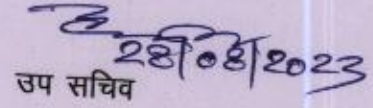 28/08/2023
उप सचिव